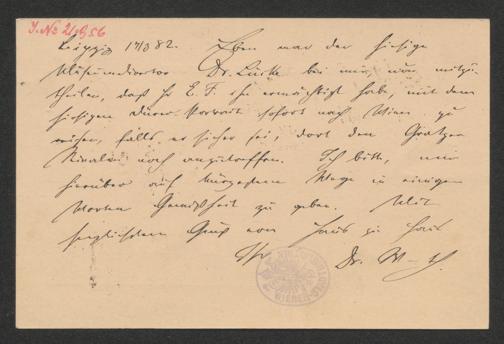 J. No 21956
Leipzig 17/3 82. Eben war der hiesige
Museumsdirector Dr. Lücke bei mir, um mitzu-
theilen, daß Hr. E. F. ihn ermächtigt habe, mit dem
hiesigen Dürer-Portrait sofort nach Wien zu
reisen, falls er sicher sei, dort den Grazer
Rivalen noch anzutreffen. Ich bitte, mir
hierüber auf kürzestem Wege in einigen
Worten Gewißheit zu geben. Mit
herzlichstem Gruß von Haus zu Haus
Ihr Dr. W
WIENER